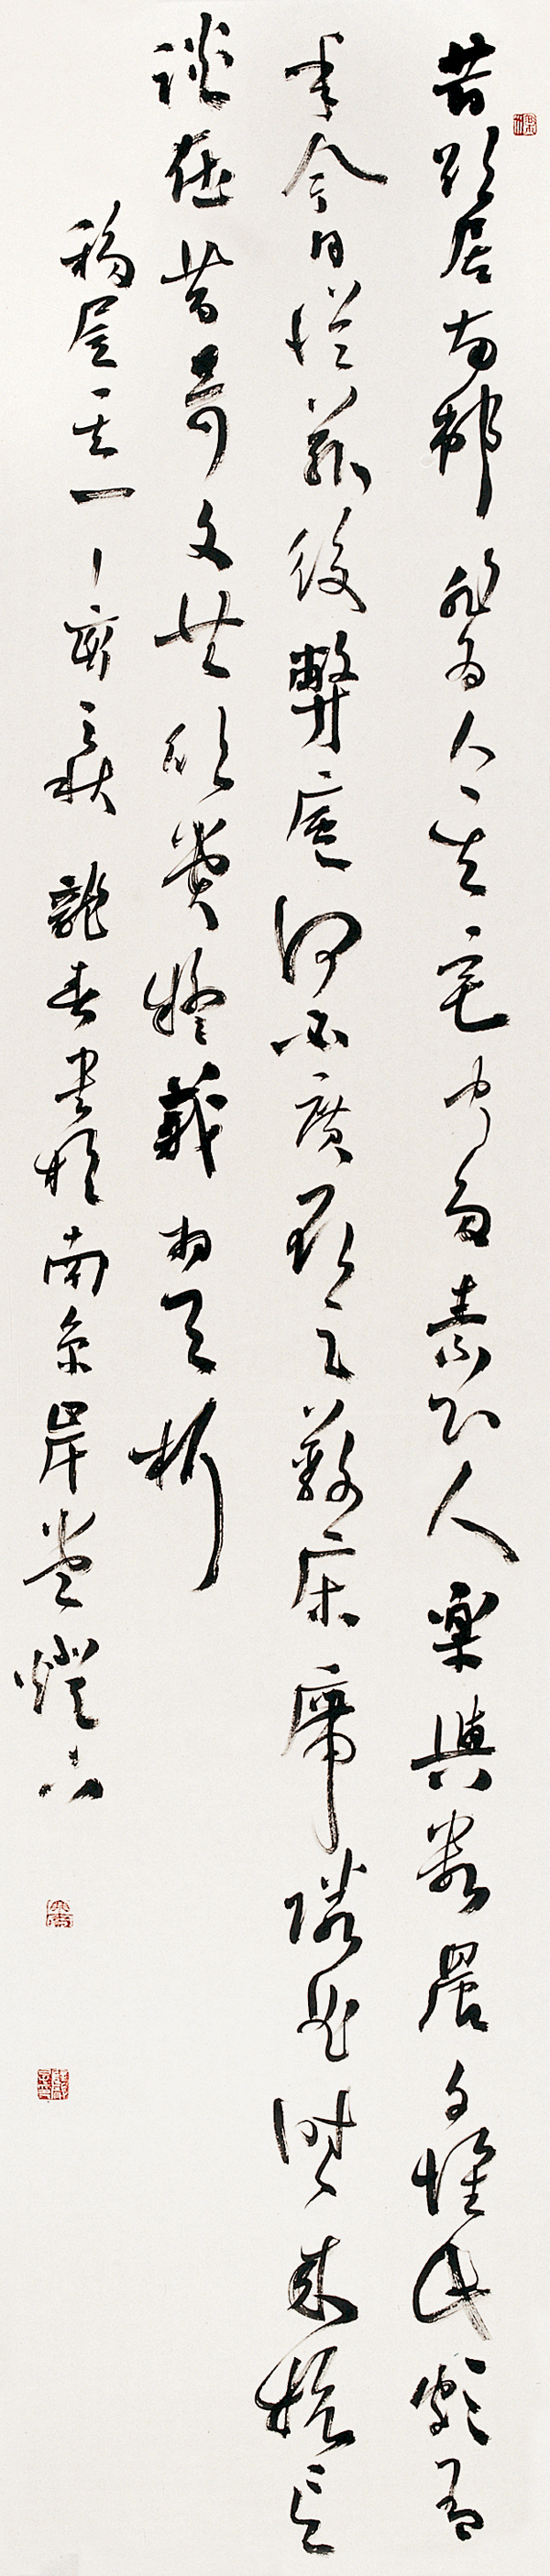 昔欲居南邨非為卜其宅聞多素心人樂與數晨夕懷此頗有
年今日從茲役弊廬何必廣取足蔽床席鄰曲時時来抗言
談在昔奇文共欣賞疑義相與析
移居其一丁亥之秋龍春書於南京岸堂燈下